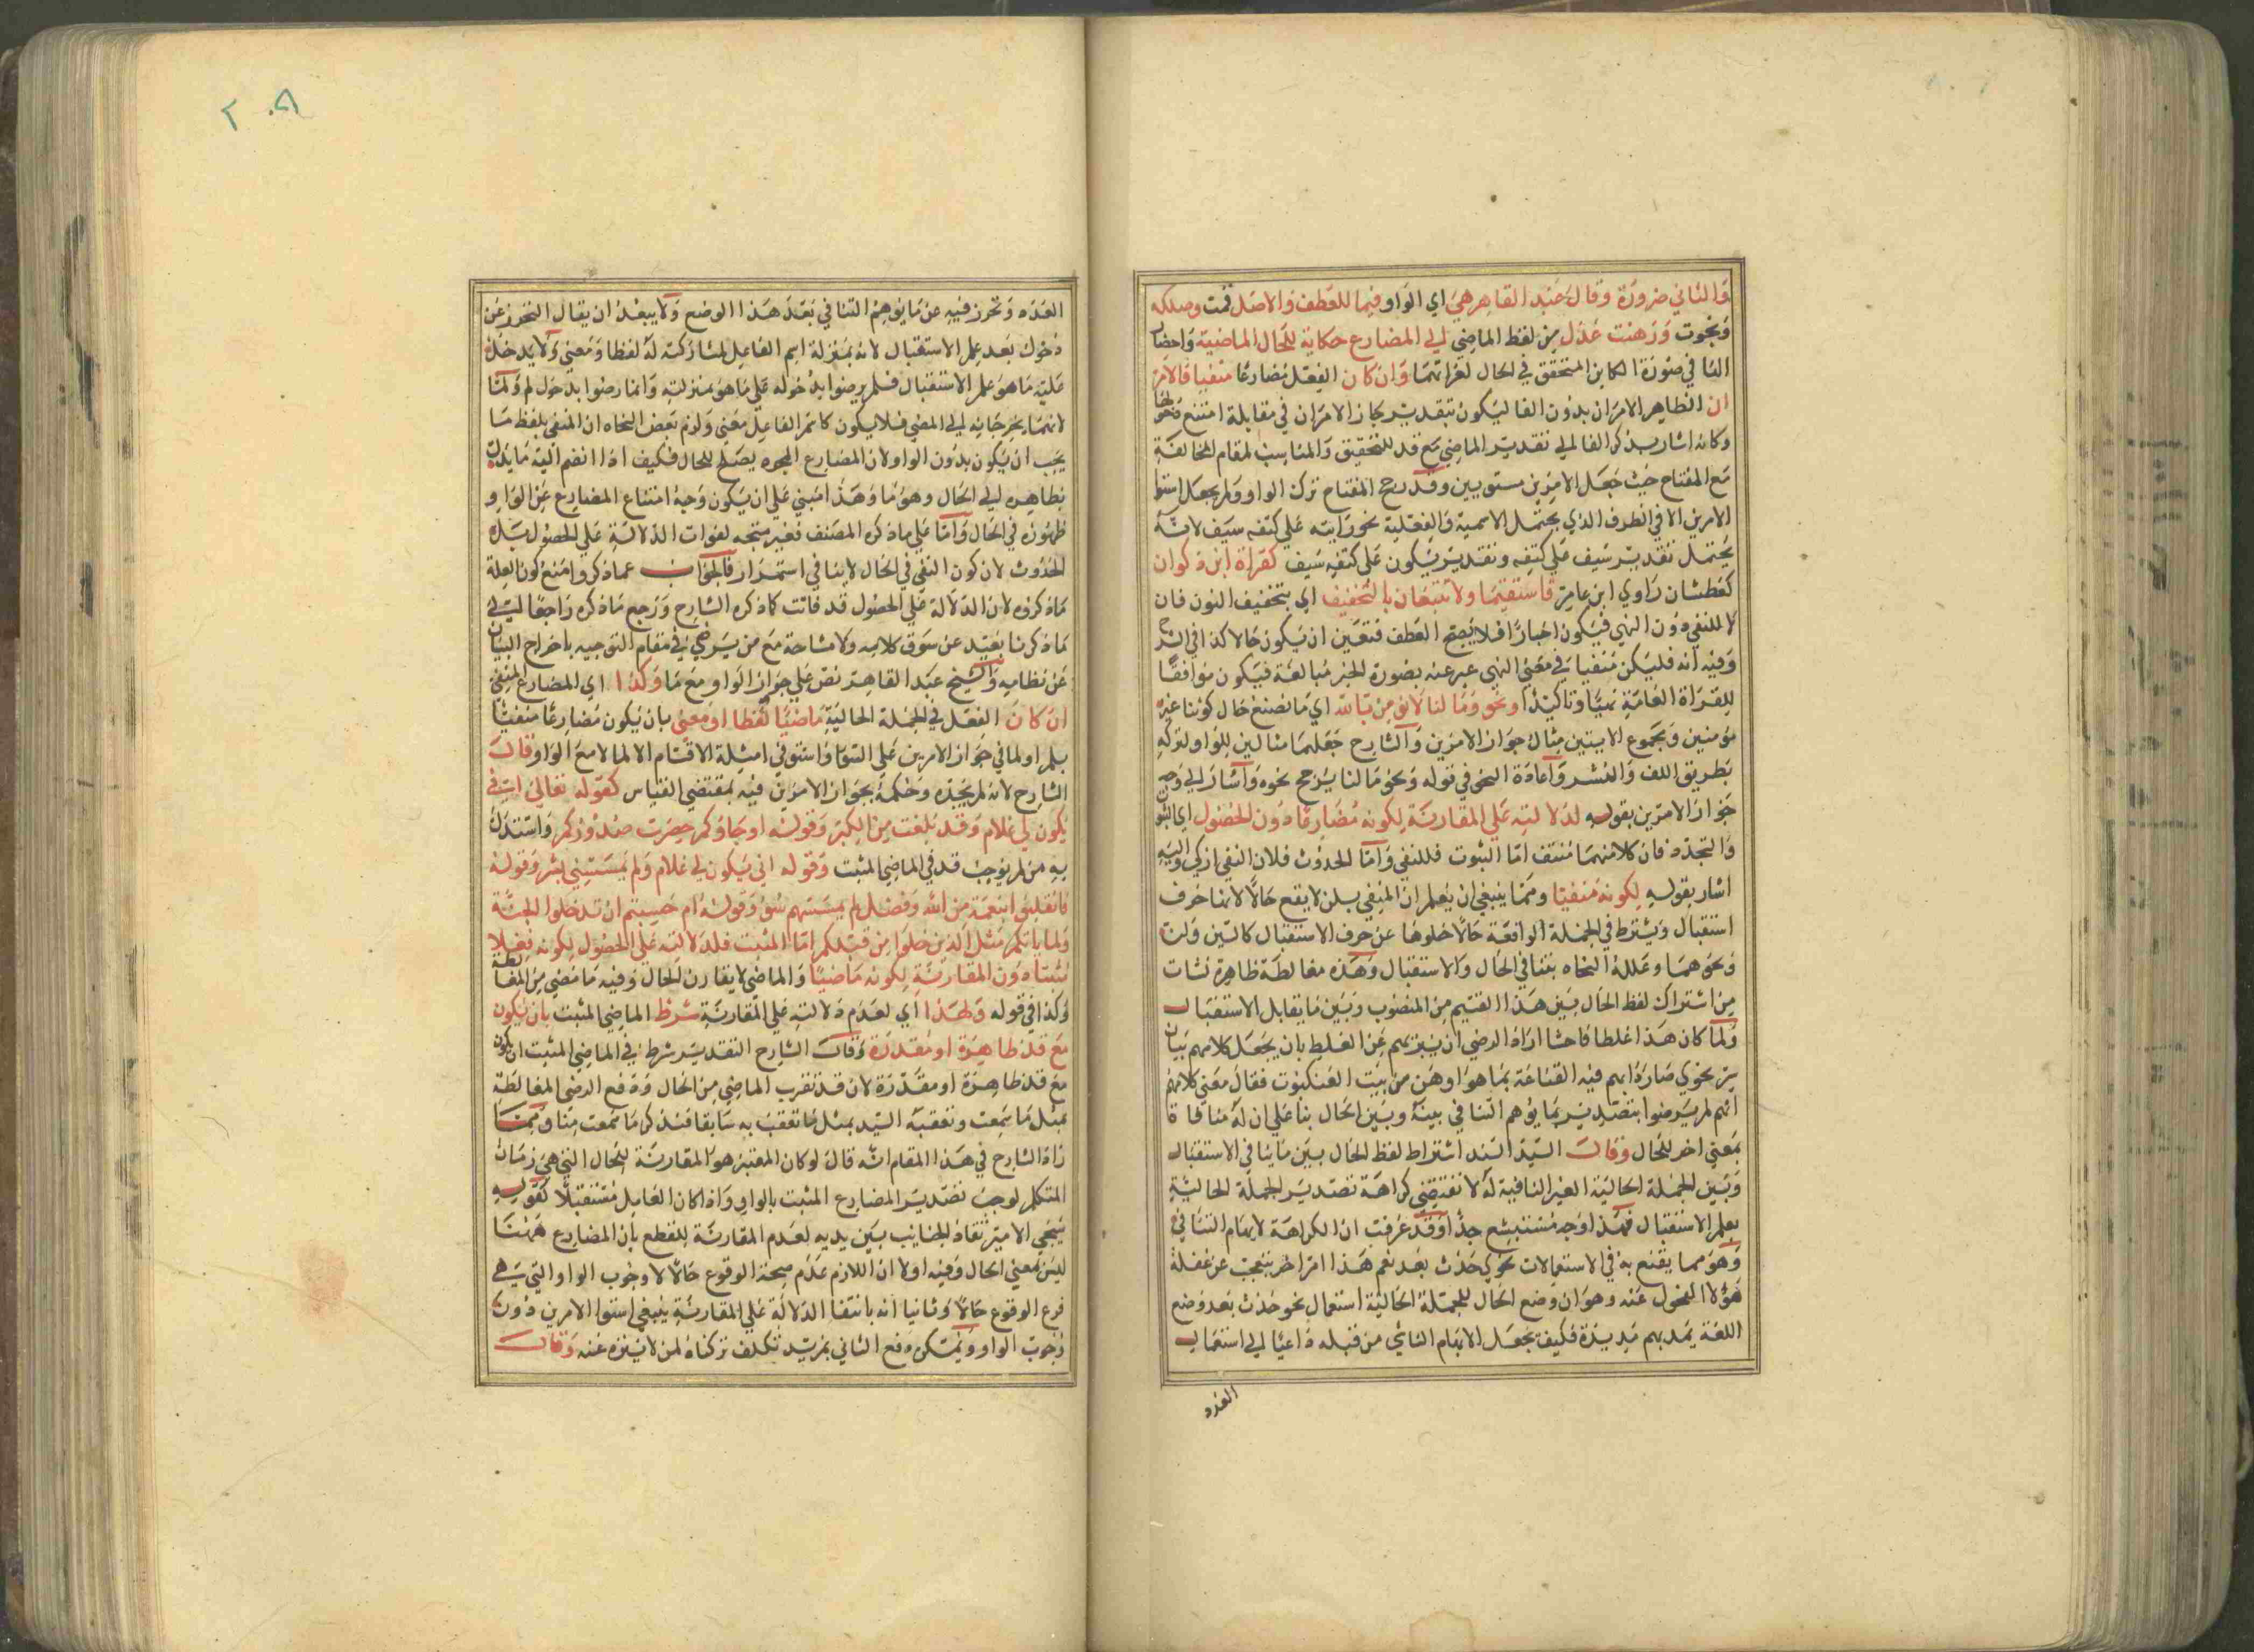 والثاني ضرورة وقال عبد القاهر هي اي الواو فيهما للعطف والاصل قمت وصككت
ونجوت ورهنت عدل من لفظ الماضي الي المضارع حكاية للحال الماضية واحضار
الثاني صورة الكاين المتحقق في الحال لغرابتهما وان كان الفعل مضارعا منفيا فالامر
ان الظاهر الامران بدون الفا ليكون بتقدير يجاز الامران في مقابلة امتنع دخولها
وكانه اشار بذكر الفا الي تقدير الماضي مع قد للتحقيق والمناسب لمقام المخالفة
مع المفتاح حيث جعل الامرين مستويين وقد رجح المفتاح ترك الواو ولم يجعل استوا
الامرين الا في الظرف الذي يحتمل الاسمية والفعلية نحو رايته علي كتفه سيف لانه
يحتمل تقدير سيف علي كتفه وتقدير يكون علي كتفه سيف كقراة ابن ذكوان
كعطشان راوي ابن عامر فاستقيما ولا تتبعان بالتخفيف اي بتخفيف النون فان
لا للنفي دون النهي فيكون اخبارا فلا يصح العطف فتعين ان يكون حالا كذا في الشرح
وفيه انه فليكن منفيا في معني النهي عبر عنه بصورة الخبر مبالغة فيكون موافقا
للقراة العامة نهيا وتاكيدا ونحو وما لنا لا نؤمن بالله اي ما نصنع حال كوننا غير
مؤمنين ومجموع الايتين مثال جواز الامرين والشارح جعلهما مثالين للواو لتركه
بطريق اللف والنشر واعادة النحو في قوله ونحو ما لنا يرجح نحوه واشار الي وجه
جواز الامرين بقوله لدلالته علي المقارنة لكونه مضارعا دون الحصول اي الثبوت
والتجدد فان كلا منهما منتف اما الثبوت فللنفي واما الحدوث فلان النفي ازلي واليه
اشار بقوله لكونه منفيا ومما ينبغي ان يعلم ان المنفي بلن لا يقع حالا لانها حرف
استقبال ويشترط في الجملة الواقعة حالا خلوها عن حرف الاستقبال كالسين ولن
ونحوهما وعلله النحاه بتنافي الحال والاستقبال وهذه مغالطة ظاهرة نشات
من اشتراك لفظ الحال بين هذا القسم من المنصوب وبين ما يقابل الاستقبال
ولما كان هذا غلطا فاحشا اراد الرضي ان يبريهم عن الغلط بان يجعل كلامهم بيان
سر نحوي صار دابهم فيه القناعة بما هو اوهن من بيت العنكبوت فقال معني كلامهم
انهم لم يرضوا بتصدير بما يوهم التنافي بينه وبين الحال بنا علي ان له منافاة
بمعني اخر للحال وقال السيد السند اشتراط لفظ الحال بين ما ينافي الاستقبال
وبين الجملة الحالية الغير النافية له لا تقتضي كراهة تصدير الجملة الحالية
بعلم الاستقبال فهذا وجه مستبشع جدا وقد عرفت ان الكراهة لايهام التنافي
وهو مما يقنع به في الاستعمالات نحوي حدث بعد نعم هذا امر اخر يتعجب عن غفلة
هؤلا الفحول عنه وهو ان وضع الحال للجملة الحالية استعمال نحو حدث بعد وضع
اللغة يمد بهم مديدة فكيف يجعل الايهام الناشي من قبله داعيا الي استعمال
العدد
العدد وتحرز فيه عن ما يوهم التنافي بعد هذا الوضع ولا يبعد ان يقال التحرز عن
دخول بعد علم الاستقبال لانه بمنزلة اسم الفاعل لمشاركته له لفظا ومعني ولا يدخل
عليه ما هو علم الاستقبال فلم يرضوا بدخوله علي ما هو بمنزلته وانما رضوا بدخول لم ولما
لانهما يخرجانه الي المضي فلا يكون كاسم الفاعل معني ولزم بعض النحاه ان المنفي بلفظ ما
يجب ان يكون بدون الواو لان المضارع المجرد يصلح للحال فكيف اذا انضم اليه ما يدل
بظاهره الي الحال وهو ما وهذا مبني علي ان يكون وجه امتناع المضارع عن الواو
ظهوره في الحال واما علي ما ذكره المصنف فغير متجه لفوات الدلالة علي الحصول بيده
الحدوث لان كون النفي في الحال لا ينافي استمرار فالجواب عما ذكر وامنع كون العلة
ما ذكروه لان الدلالة علي الحصول قد فاتت كما ذكره الشارح ورجع ما ذكره راجعا الي
ما ذكرنا بعيد عن سوق كلامه ولا مشاحة مع من يرضي في مقام التوجيه باخراج البيان
عن نظامه والشيخ عبد القاهر نص علي جواز الواو مع ما وكذا اي المضارع المنفي
ان كان الفعل في الجملة الحالية ماضيا لفظا او معني بان يكون مضارعا منفيا
بلم او لما في جواز الامرين علي السوا واستوفي امثلة الاقسام الا لما لا مع الواو وقال
الشارح لانه لم يجده وحكمه بجواز الامرين فيه بمقتضي القياس كقوله تعالي اني
يكون لي غلام وقد بلغت من الكبر وقوله او جاؤكم حصرت صدورهم واستدل
به من لم يوجب قد في الماضي المثبت وقوله اني يكون لي غلام ولم يمسسني بشر وقوله
فانقلبوا بنعمة من الله وفضل لم يمسسهم سوء وقوله ام حسبتم ان تدخلوا الجنة
ولما ياتكم مثل الذين خلوا من قبلكم اما المثبت فلدلالته علي الحصول لكونه فعلا
مثبتا دون المقارنة لكونه ماضيا والماضي لا يقارن الحال وفيه ما مضي من المغالطة
وكذا في قوله ولهذا اي لعدم دلالته علي المقارنة شرط الماضي المثبت بان يكون
مع قد ظاهرة او مقدرة وقال الشارح التقدير شرط في الماضي المثبت ان يكون
مع قد ظاهرة او مقدرة لان قد تقرب الماضي من الحال ودفع الرضي المغالطة
بمثل ما سمعت وتعقبه السيد بمثل ما تعقب به سابقا فتذكر ما سمعت منا ومما
زاد الشارح في هذا المقام انه قال لو كان المعتبر هو المقارنة للحال التي هي زمان
المتكلم لوجب تصدير المضارع المثبت بالواو واذا كان العامل مستقبلا كقوله
يجي الامير تقاد الجنايب بين يديه لعدم المقارنة للقطع بان المضارع ههنا
ليس بمعني الحال وفيه اولا ان اللازم عدم صحة الوقوع حالا لا وجوب الواو التي هي
فرع الوقوع حالا وثانيا انه بانتفا الدلالة علي المقارنة ينبغي استوا الامرين دون
وجوب الواو ويمكن دفع الثاني بمزيد تكلف تركناه لمن لا يتنزه عنه وقال
٢٠٨